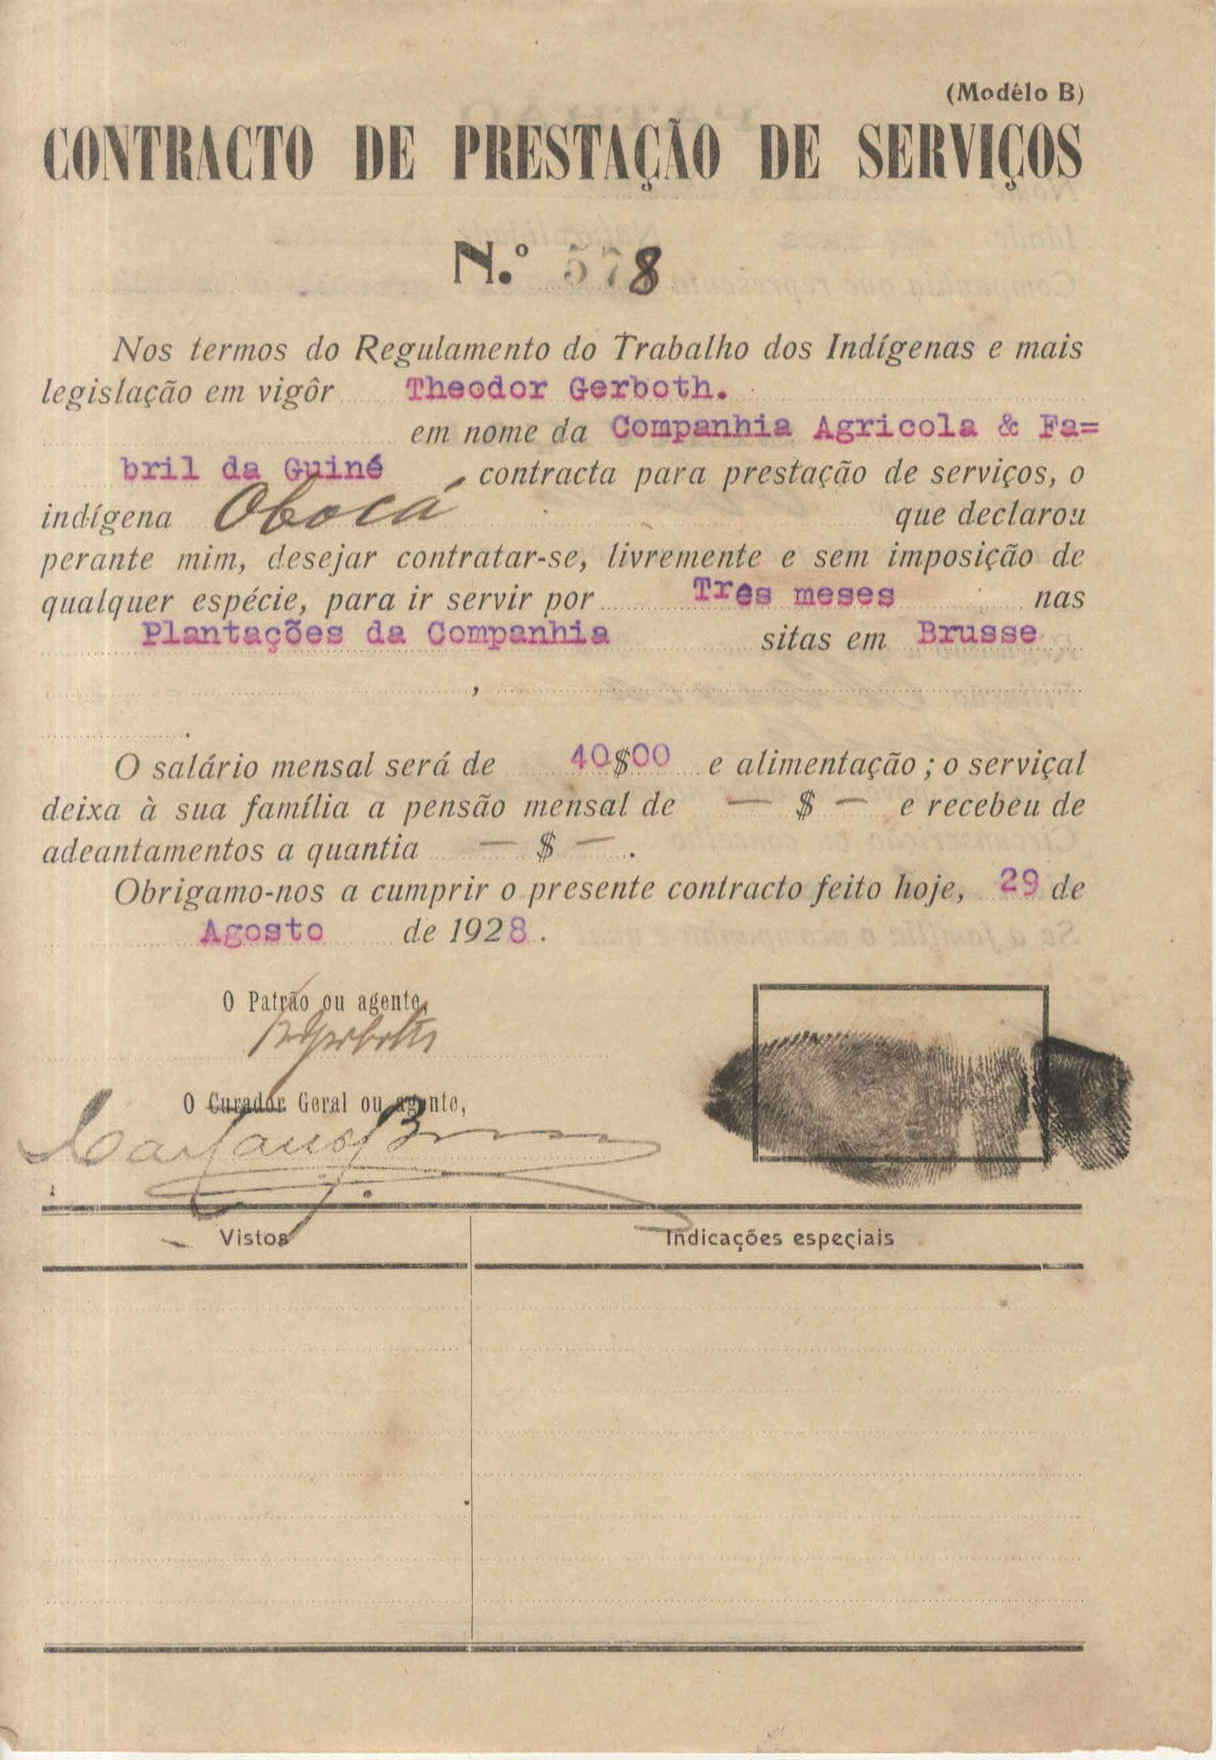 (Modêlo B)
CONTRACTO DE PRESTAÇÃO DE SERVIÇOS
N.º 578
Nos termos do Regulamento do Trabalho dos Indígenas e mais
legislação em vigôr Theodor Gerboth.
em nome da Companhia Agricola & Fa=
bril da Guiné contracta para prestação de serviços, o
indígena Obocá que declarou
perante mim, desejar contratar-se, livremente e sem imposição de
qualquer espécie, para ir servir por Três meses nas
Plantações da Companhia sitas em Brusse
,
.
O salário mensal será de 40$00 e alimentação; o serviçal
deixa à sua família a pensão mensal de — $ — e recebeu de
adeantamentos a quantia — $ — .
Obrigamo-nos a cumprir o presente contracto feito hoje, 29 de
Agosto de 1928.
O Patrão ou agente,
O Curador Geral ou agente,
Vistos
Indicações especiais